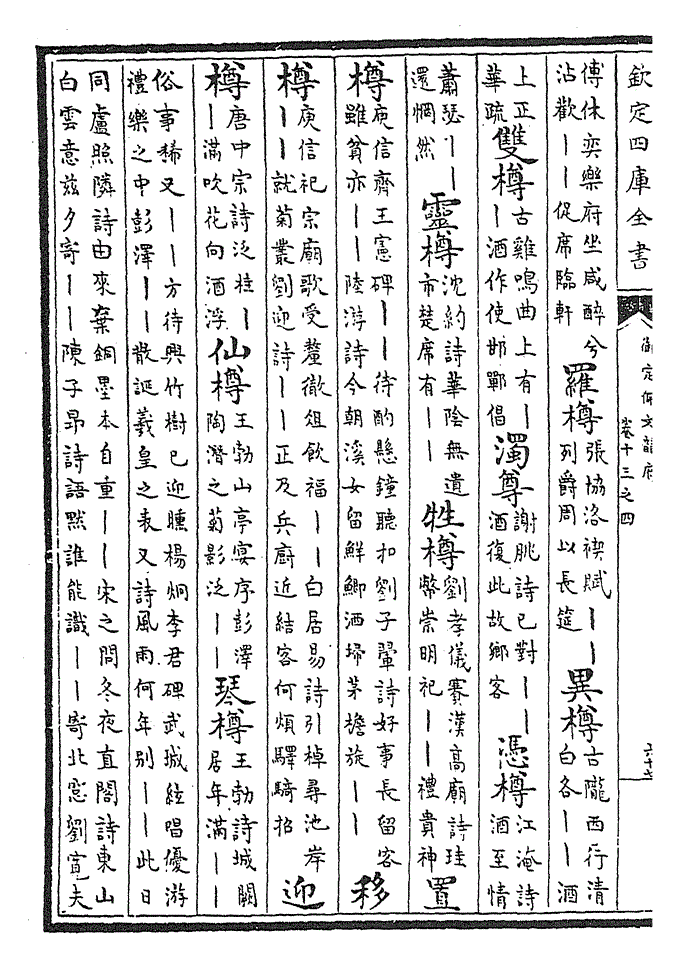 欽定四庫全書
御定佩文韻府
卷十三之四
六十七
傅休奕樂府坐咸醉兮
沾歡丨丨促席臨軒
羅樽
張協洛禊賦丨丨
列爵周以長筵
異樽
古隴西行清
白各丨丨酒
上正
華疏
雙樽
古雞鳴曲上有丨
丨酒作使邯鄲倡
濁尊
謝朓詩已對丨丨
酒復此故鄉客
憑樽
江淹詩
酒至情
蕭瑟丨丨
還惘然
靈樽
沈約詩華陰無遺
布楚席有丨丨
牲樽
劉孝儀賽漢高廟詩珪
幣崇明祀丨丨禮貴神
置
樽
庾信齊王憲碑丨丨待酌懸鐘聽扣劉子翬詩好事長留客
雖貧亦丨丨陸游詩今朝溪女留鮮鯽酒埽茅檐旋丨丨
移
樽
庾信祀宗廟歌受釐徹俎飲福丨丨白居易詩引棹尋池岸
丨丨就菊叢劉迎詩丨丨正及兵廚近結客何煩驛騎招
迎
樽
唐中宗詩泛桂丨
丨滿吹花向酒浮
仙樽
王勃山亭宴序彭澤
陶潛之菊影泛丨丨
琴樽
王勃詩城闕
居年滿丨丨
俗事稀又丨丨方待興竹樹已迎曛楊炯李君碑武城絃唱優游
禮樂之中彭澤丨丨散誕羲皇之表又詩風雨何年別丨丨此日
同盧照隣詩由來棄銅墨本自重丨丨宋之問冬夜直閣詩東山
白雲意茲夕寄丨丨陳子昂詩語默誰能識丨丨寄北窓劉寘夫